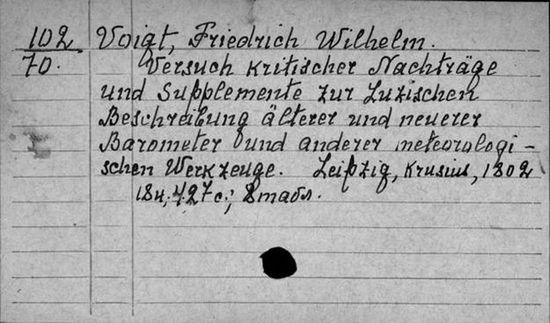 102 Voigt, Friedrich Wilhelm.
70. Versuch kritischer Nachträge
und Supplemente zur Luzischen
Beschreibung älterer und neuerer
Barometer und anderer meteorologi-
schen Werkzeuge. Leipzig, Krusius, 1802
427 c.; 8 табл.